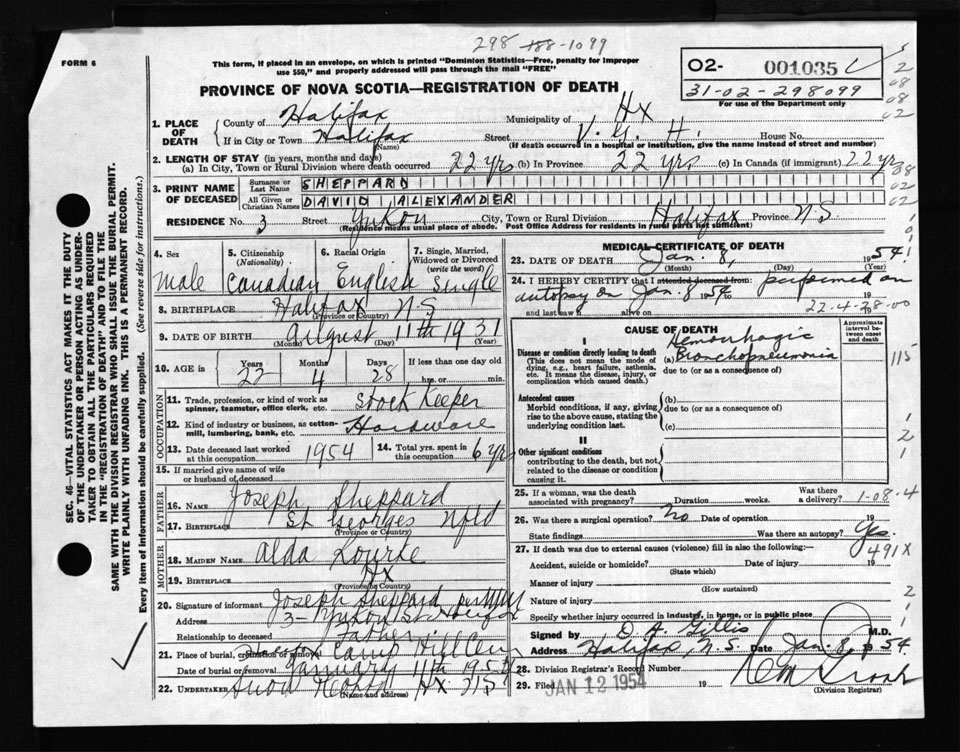 298 188-1099
FORM 6
This form, if placed in an envelope, on which is printed "Dominion Statistics—Free, penalty for improper
use $50," and properly addressed will pass through the mail "FREE"
O2- 001035
31-02-298099
For use of the Department only
PROVINCE OF NOVA SCOTIA—REGISTRATION OF DEATH
1. PLACE OF DEATH
County of Halifax Municipality of Hx
If in City or Town Halifax Street V. G. H. House No.
(Name) (If death occurred in a hospital or institution, give the name instead of street and number)
2. LENGTH OF STAY (in years, months and days)
(a) In City, Town or Rural Division where death occurred 22 yrs (b) In Province 22 yrs (c) In Canada (if immigrant) 22 yrs
3. PRINT NAME OF DECEASED
Surname or Last Name SHEPPARD
All Given or Christian Names DAVID ALEXANDER
RESIDENCE No. 3 Street Yukon City, Town or Rural Division Halifax Province N.S.
(Residence means usual place of abode. Post Office Address for residents in rural parts not sufficient)
4. Sex
5. Citizenship (Nationality)
6. Racial Origin
7. Single, Married, Widowed or Divorced (write the word)
Male Canadian English Single
8. BIRTHPLACE Halifax N.S
(Province or Country)
9. DATE OF BIRTH August 11th 1931
(Month) (Day) (Year)
10. AGE in Years 22 Months 4 Days 28 If less than one day old
hrs. or min.
OCCUPATION
11. Trade, profession, or kind of work as spinner, teamster, office clerk, etc. Stock Keeper
12. Kind of industry or business, as cotton-mill, lumbering, bank, etc. Hardware
13. Date deceased last worked at this occupation 1954
14. Total yrs. spent in this occupation 6 yrs
15. If married give name of wife or husband of deceased
FATHER
16. NAME Joseph Sheppard
17. BIRTHPLACE St Georges Nfld
(Province or Country)
MOTHER
18. MAIDEN NAME Alda
19. BIRTHPLACE Hx
(Province or Country)
20. Signature of informant Joseph Sheppard
Address 3- Yukon St Halifax
Relationship to deceased Father
21. Place of burial, cremation or removal Camp Hill Cem
Date of burial or removal January 11th 1954
22. UNDERTAKER Snow Hx. N S
(Name and address)
MEDICAL CERTIFICATE OF DEATH
23. DATE OF DEATH Jan. 8, 1954
(Month) (Day) (Year)
24. I HEREBY CERTIFY that I attended deceased from: performed an
autopsy on Jan. 8 1954 to
and last saw alive on 19
22-4-28-00
CAUSE OF DEATH
Approximate interval between onset and death
I
Disease or condition directly leading to death
(This does not mean the mode of dying, e.g., heart failure, asthenia, etc. It means the disease, injury, or complication which caused death.)
Hemorrhagic
(a) Bronchopneumonia
due to (or as a consequence of)
115
Antecedent causes
Morbid conditions, if any, giving rise to the above cause, stating the underlying condition last.
(b)
due to (or as a consequence of)
(c)
II
Other significant conditions
contributing to the death, but not related to the disease or condition causing it.
25. If a woman, was the death associated with pregnancy? Duration weeks. Was there a delivery? 1-08-4
26. Was there a surgical operation? No Date of operation 19
State findings Was there an autopsy? Yes
491X
27. If death was due to external causes (violence) fill in also the following:—
Accident, suicide or homicide? Date of injury 19
(State which)
Manner of injury
(How sustained)
Nature of injury
Specify whether injury occurred in industry, in home, or in public place
Signed by D. J. Gillis M.D.
Address Halifax, N.S. Date Jan. 8 1954
28. Division Registrar's Record Number
29. Filed JAN 12 1954 19
(Division Registrar)
SEC. 46—VITAL STATISTICS ACT MAKES IT THE DUTY
OF THE UNDERTAKER OR PERSON ACTING AS UNDER-
TAKER TO OBTAIN ALL THE PARTICULARS REQUIRED
IN THE "REGISTRATION OF DEATH" AND TO FILE THE
SAME WITH THE DIVISION REGISTRAR WHO SHALL ISSUE THE BURIAL PERMIT.
WRITE PLAINLY WITH UNFADING INK. THIS IS A PERMANENT RECORD.
Every item of information should be carefully supplied. (See reverse side for instructions.)